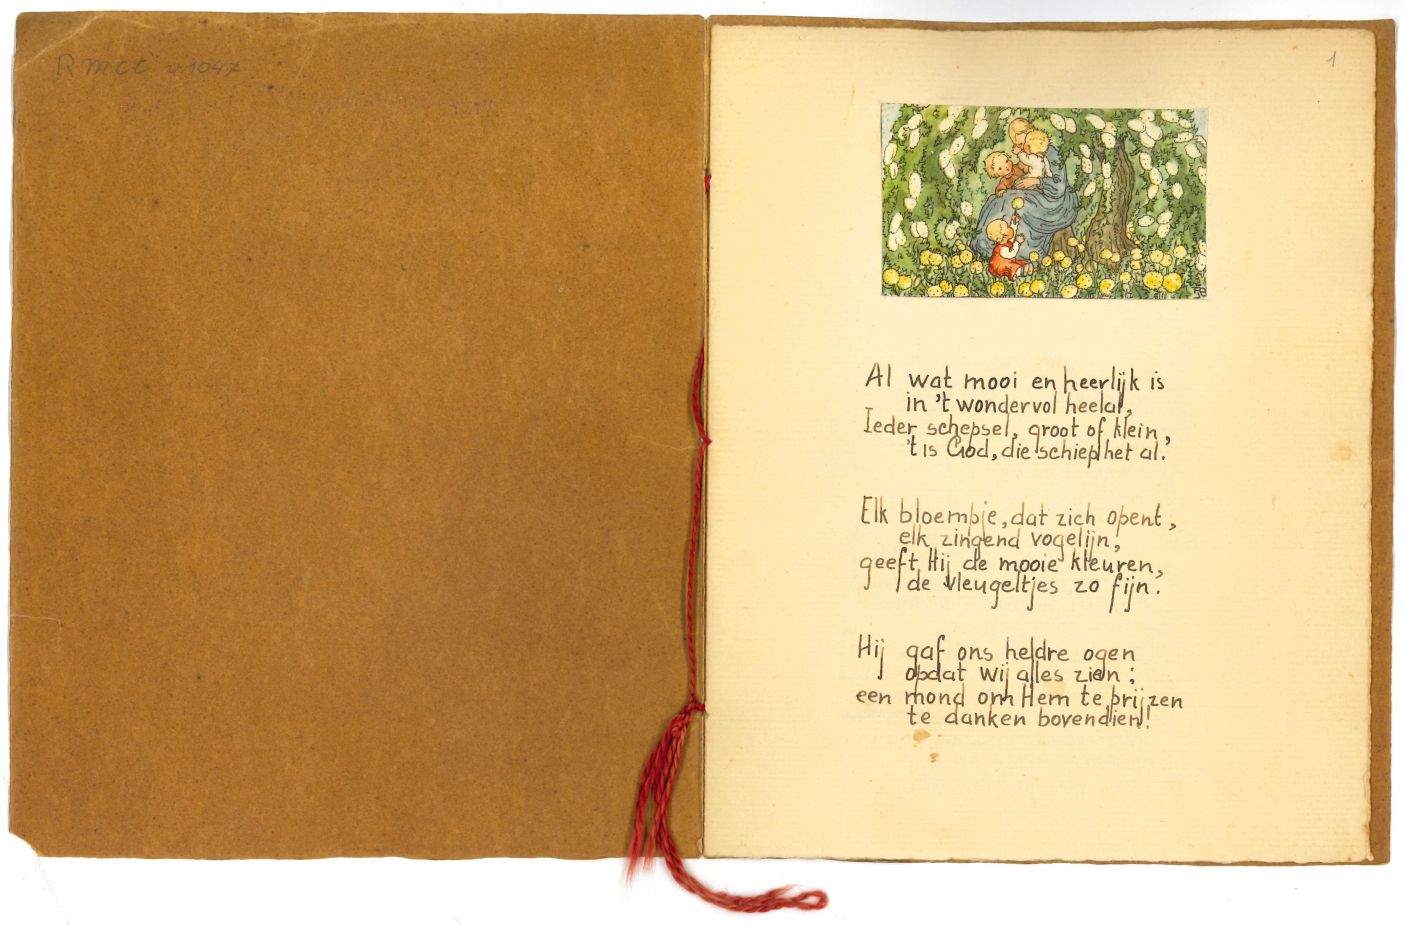 R MCC v. 1047
1
Al wat mooi en heerlijk is
in 't wondervol heelal,
Ieder schepsel, groot of klein,
't is God, die schiep het al.
Elk bloempje, dat zich opent,
elk zingend vogelijn,
geeft Hij de mooie kleuren,
de vleugeltjes zo fijn.
Hij gaf ons heldre ogen
opdat wij alles zien;
een mond om Hem te prijzen
te danken bovendien!